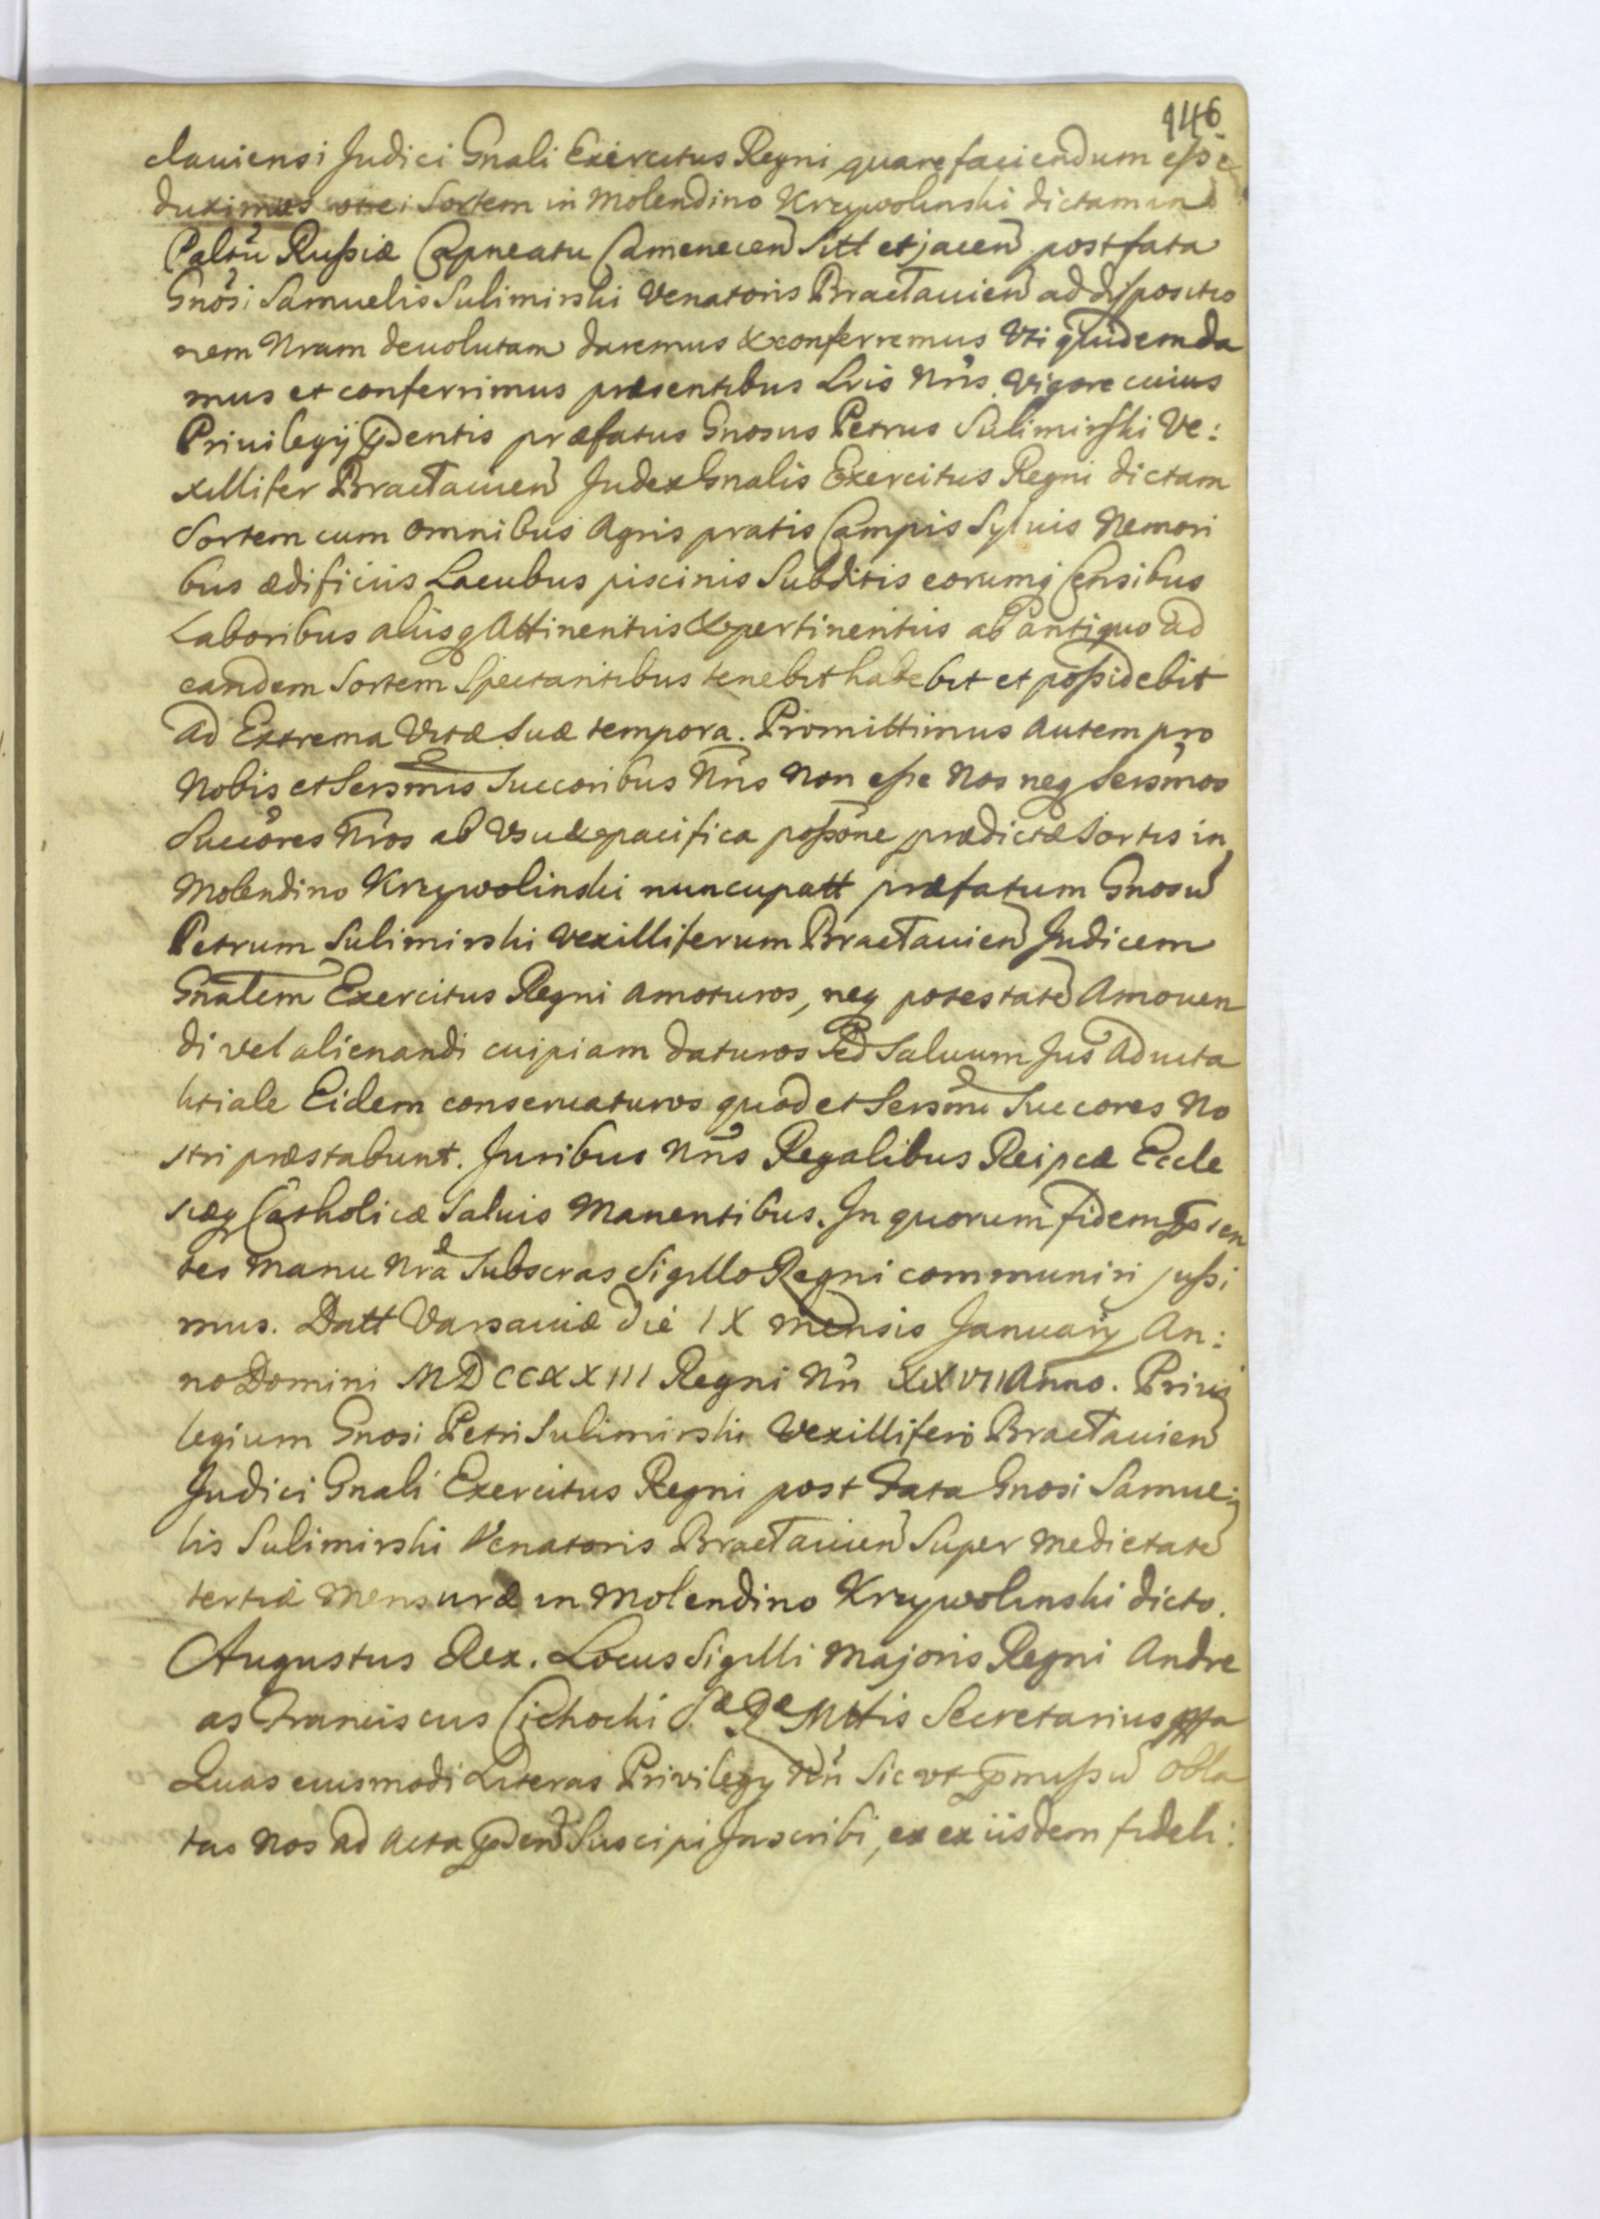 146
clauiensi Judici Gnali Exercitus Regni quare faciendum esse
duximus Sortem in Molendino Krzywolinski dictam in
Palttu Russiæ Capneatu Camenecen Sitt et jacen post fata
Gnosi Samuelis Sulimirski Venatoris Bractauien ad dispositio
nem Nram deuolutam daremus & conferremus Uti quidem da
mus et conferrimus præsentibus Lris Nris. Vigore cuius
Priuilegij pdentis præfatus Gnosus Petrus Sulimirski Ve:
xillifer Bractauien Judex Gnalis Exercitus Regni dictam
Sortem cum omnibus Agris pratis Campis Syluis Nemori
bus ædificiis Lacubus piscinis Subditis eorumq Censibus
Laboribus aliisq Attinentiis & pertinentiis ab antiquo ad
eandem Sortem Spectantibus tenebit habebit et possidebit
ad Extrema Vitæ Suæ tempora. Promittimus autem pro
Nobis et Sersmis Succoribus Nris Non esse Nos neq Sersmos
Succores Nros ab Usu & pacifica possone prædictæ Sortis in
Molendino Krzywolinski nuncupatt præfatum Gnosu
Petrum Sulimirski Vexilliferum Bractauien Judicem
Gnalem Exercitus Regni amoturos, neq potestate Amouen
di vel alienandi cuipiam daturos Sed Saluum Jus aduita
litiale Eidem conseruaturos quod et Sersmi Succores No
stri præstabunt. Juribus Nris Regalibus Reipcæ Eccle
siæq Catholicæ Saluis Manentibus. In quorum fidem psen
tes Manu Nra Subscras Sigillo Regni communiri jussi
mus. Datt Varsauiæ die IX mensis January An:
no Domini MDCCXXIII Regni Nri XXVII Anno. Priui
legium Gnosi Petri Sulimirski Vexilliferi Bractauien
Judici Gnali Exercitus Regni post Fata Gnosi Samue:
lis Sulimirski Venatoris Bractauien Super Medietate
tertiæ Mensuræ in Molendino Krzywolinski dicto.
Augustus Rex. Locus Sigilli Majoris Regni Andre
as Franciscus Cichocki S.æ Ræ Mttis Secretarius mppa
Quas eiusmodi Literas Privilegy Sic ut pmissu obla
tas Nos ad Acta pden Suscipi Inscribi, ex exiisdem fideli: